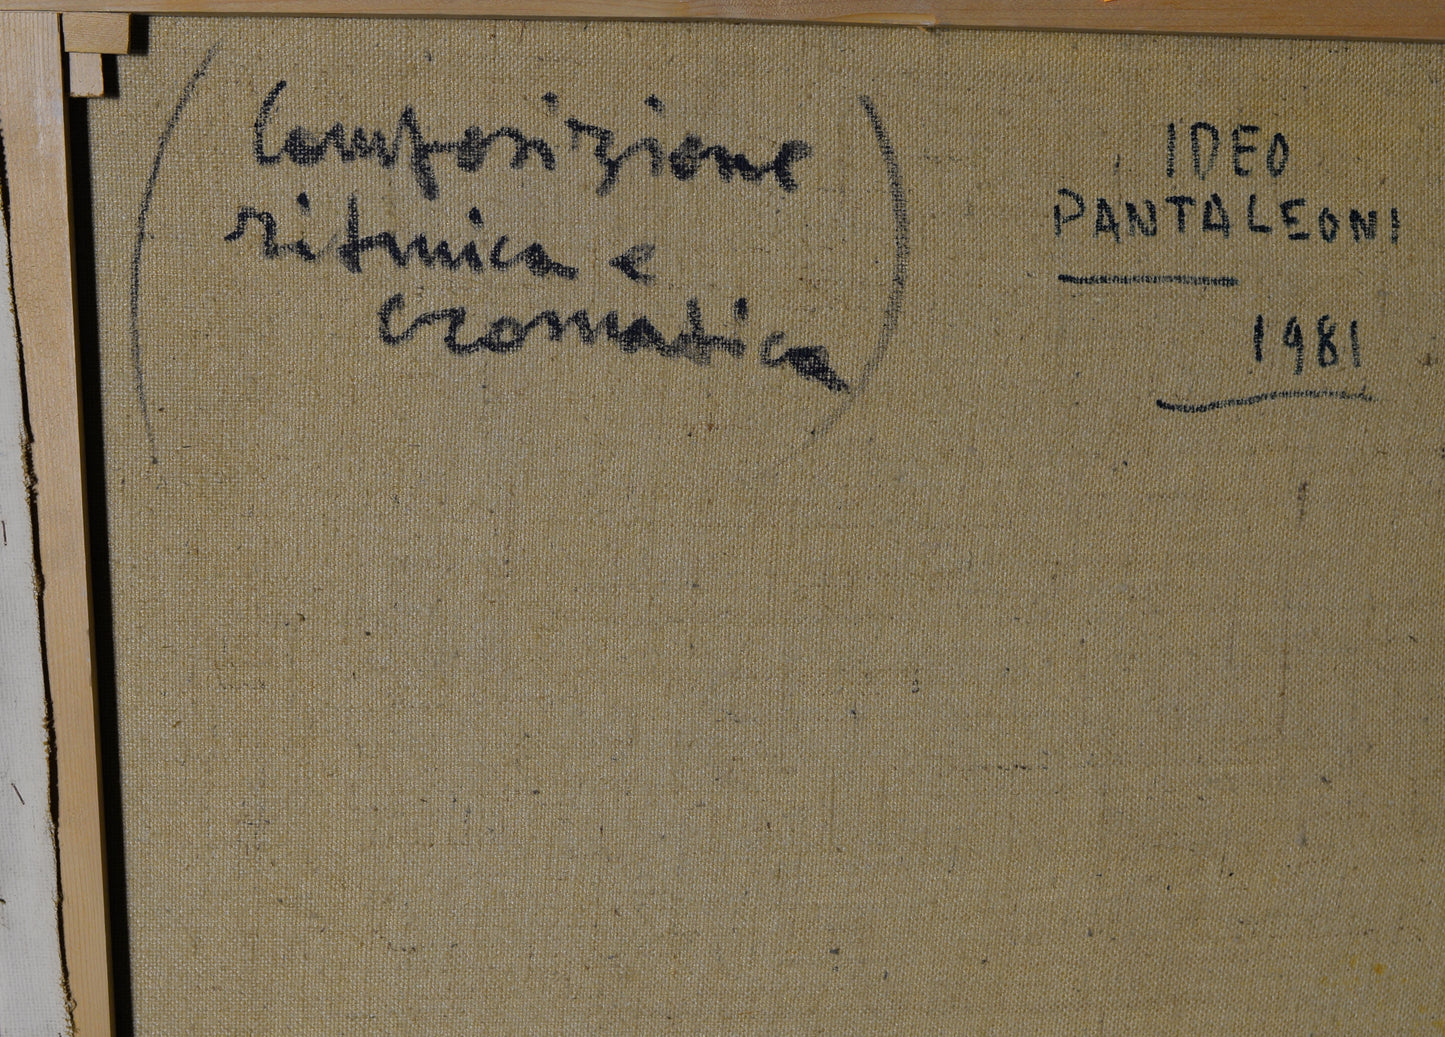 (Composizione
ritmica e
cromatica)
IDEO
PANTALEONI
1981